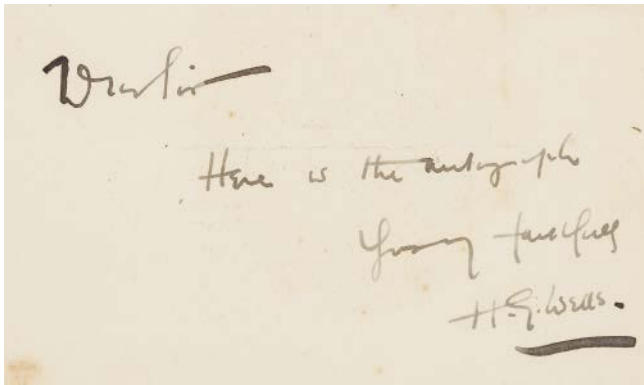 Dear Sir
Here is the autograph
Yours faithfully
H. G. Wells.